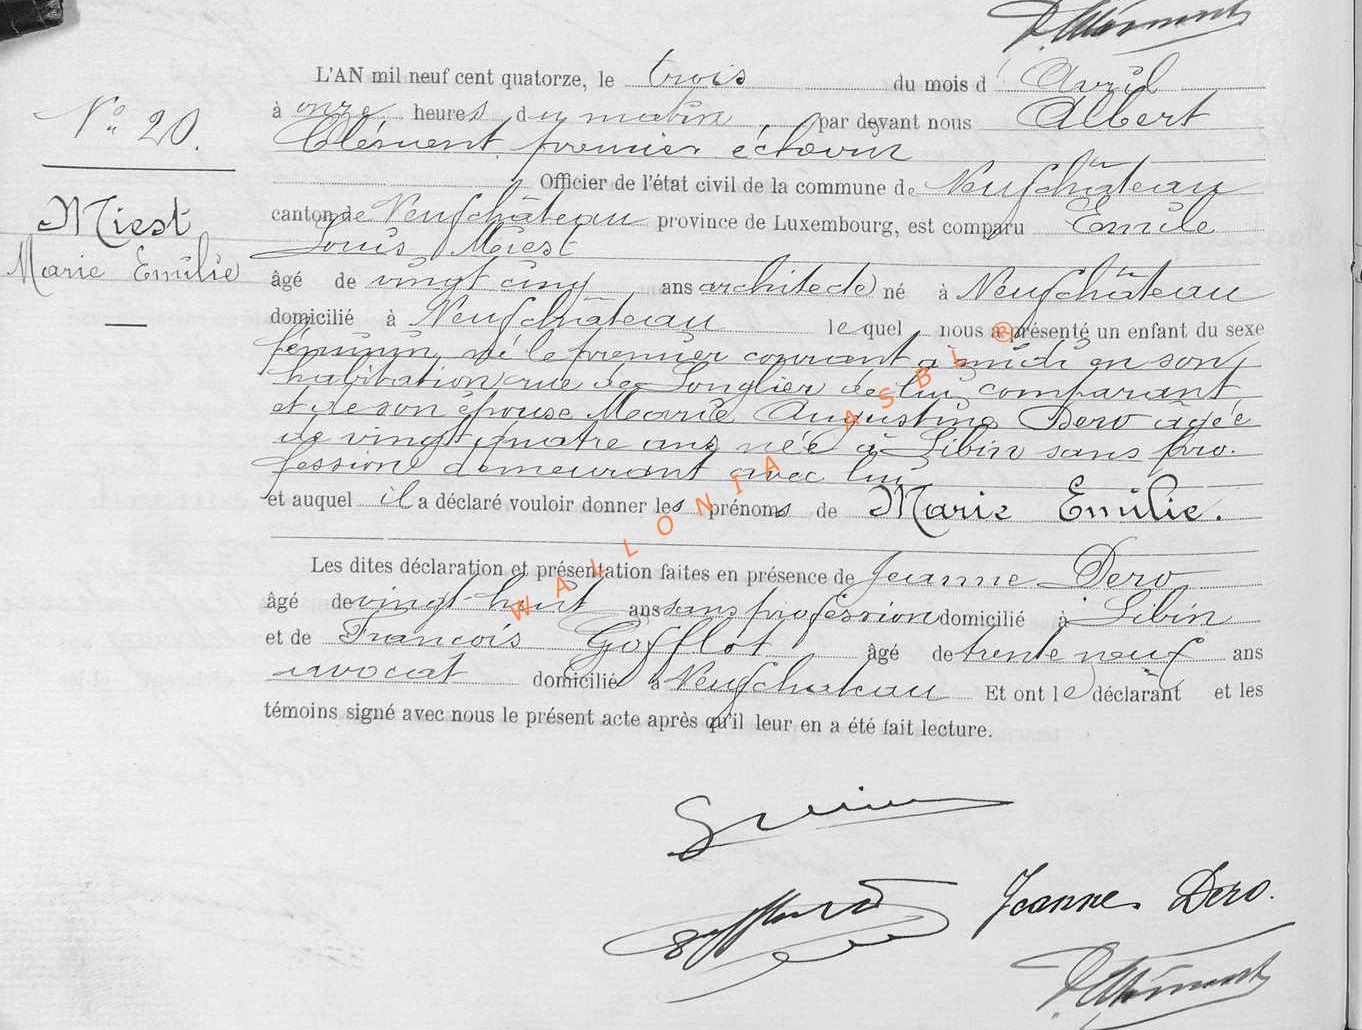 L'AN mil neuf cent quatorze, le trois du mois d' Avril
N° 20.
à onze heures du matin, par devant nous Albert
Clément, premier échevin
Officier de l'état civil de la commune de Neufchâteau
Miest
canton de Neufchâteau province de Luxembourg, est comparu Emile
Louis Miest
Marie Emilie
âgé de vingt cinq ans architecte né à Neufchâteau
domicilié à Neufchâteau lequel nous a présenté un enfant du sexe
féminin, né le premier courant à midi en son
habitation rue de Longlier de lui comparant
et de son épouse Marie Augustine Dero agée
de vingt quatre ans née à Libin sans pro-
fession demeurant avec lui
et auquel il a déclaré vouloir donner les prénoms de Marie Emilie.
Les dites déclaration et présentation faites en présence de Jeanne Dero
âgé de vingt huit ans sans profession domicilié à Libin
et de François Gofflot âgé de trente neuf ans
avocat domicilié à Neufchateau Et ont le déclarant et les
témoins signé avec nous le présent acte après qu'il leur en a été fait lecture.
WALLONIA ASBL ®
Jeanne Dero.